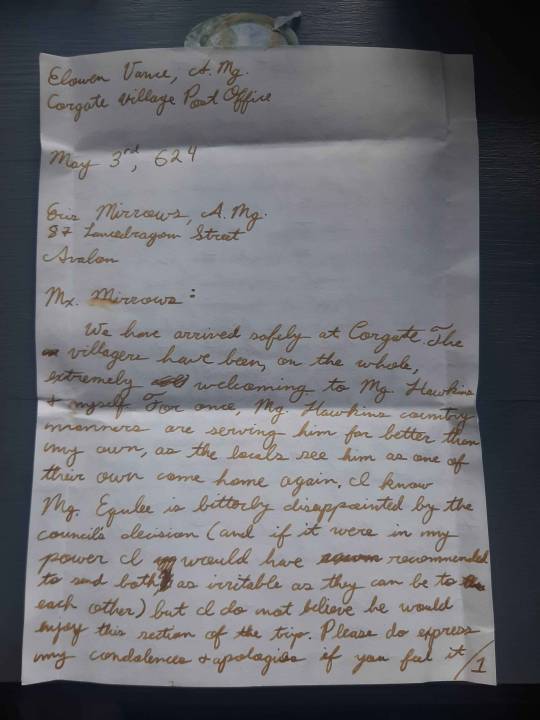 Elowen Vance, A. Mg.
Corgate Village Post Office
May 3rd, 624
Eris Mirrows, A. Mg.
87 Lancedragon Street
Avalon
Mx. Mirrows:
We have arrived safely at Corgate. The
villagers have been, on the whole,
extremely welcoming to Mg. Hawkins
& myself. For once, Mg. Hawkins country
manners are serving him far better than
my own, as the locals see him as one of
their own come home again. I know
Mg. Equlee is bitterly disappointed by the
council's decision (and if it were in my
power I would have recommended
to send both, as irritable as they can be to
each other) but I do not believe he would
enjoy this section of the trip. Please do express
my condolences & apologies if you feel it
/1